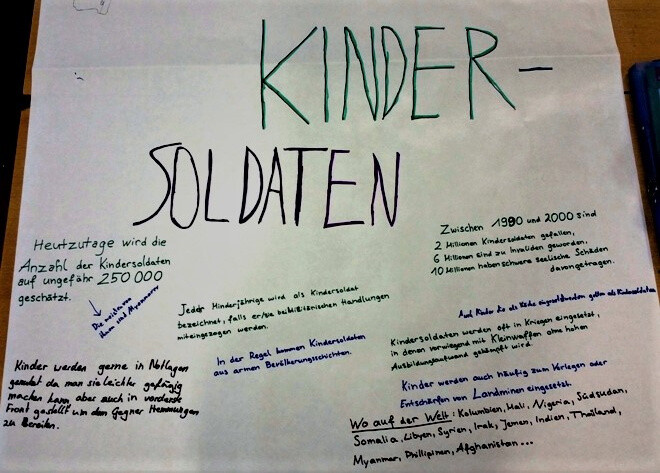 KINDER-
SOLDATEN
Heutzutage wird die
Anzahl der Kindersoldaten
auf ungefähr 250 000
geschätzt.
Die meisten von
ihnen sind Myanmar
Zwischen 1990 und 2000 sind
2 Millionen Kindersoldaten gefallen,
6 Millionen sind zu Invaliden geworden,
10 Millionen haben schwere seelische Schäden
davongetragen.
Jeder Minderjährige wird als Kindersoldat
bezeichnet, falls er/sie bei militärischen Handlungen
miteingezogen werden.
In der Regel kommen Kindersoldaten
aus armen Bevölkerungsschichten.
Auch Kinder die als Köche eingesetzt werden gelten als Kindersoldaten
Kindersoldaten werden oft in Kriegen eingesetzt,
in denen vorwiegend mit Kleinwaffen ohne hohen
Ausbildungsaufwand gekämpft wird.
Kinder werden auch häufig zum Verlegen oder
Entschärfen von Landminen eingesetzt.
Kinder werden gerne in Notlagen
genutzt da man sie leichter gefügig
machen kann aber auch in vorderste
Front gestellt um den Gegner Hemmungen
zu Bereiten.
Wo auf der Welt: Kolumbien, Mali, Nigeria, Südsudan,
Somalia, Libyen, Syrien, Irak, Jemen, Indien, Thailand,
Myanmar, Phillipinen, Afghanistan...